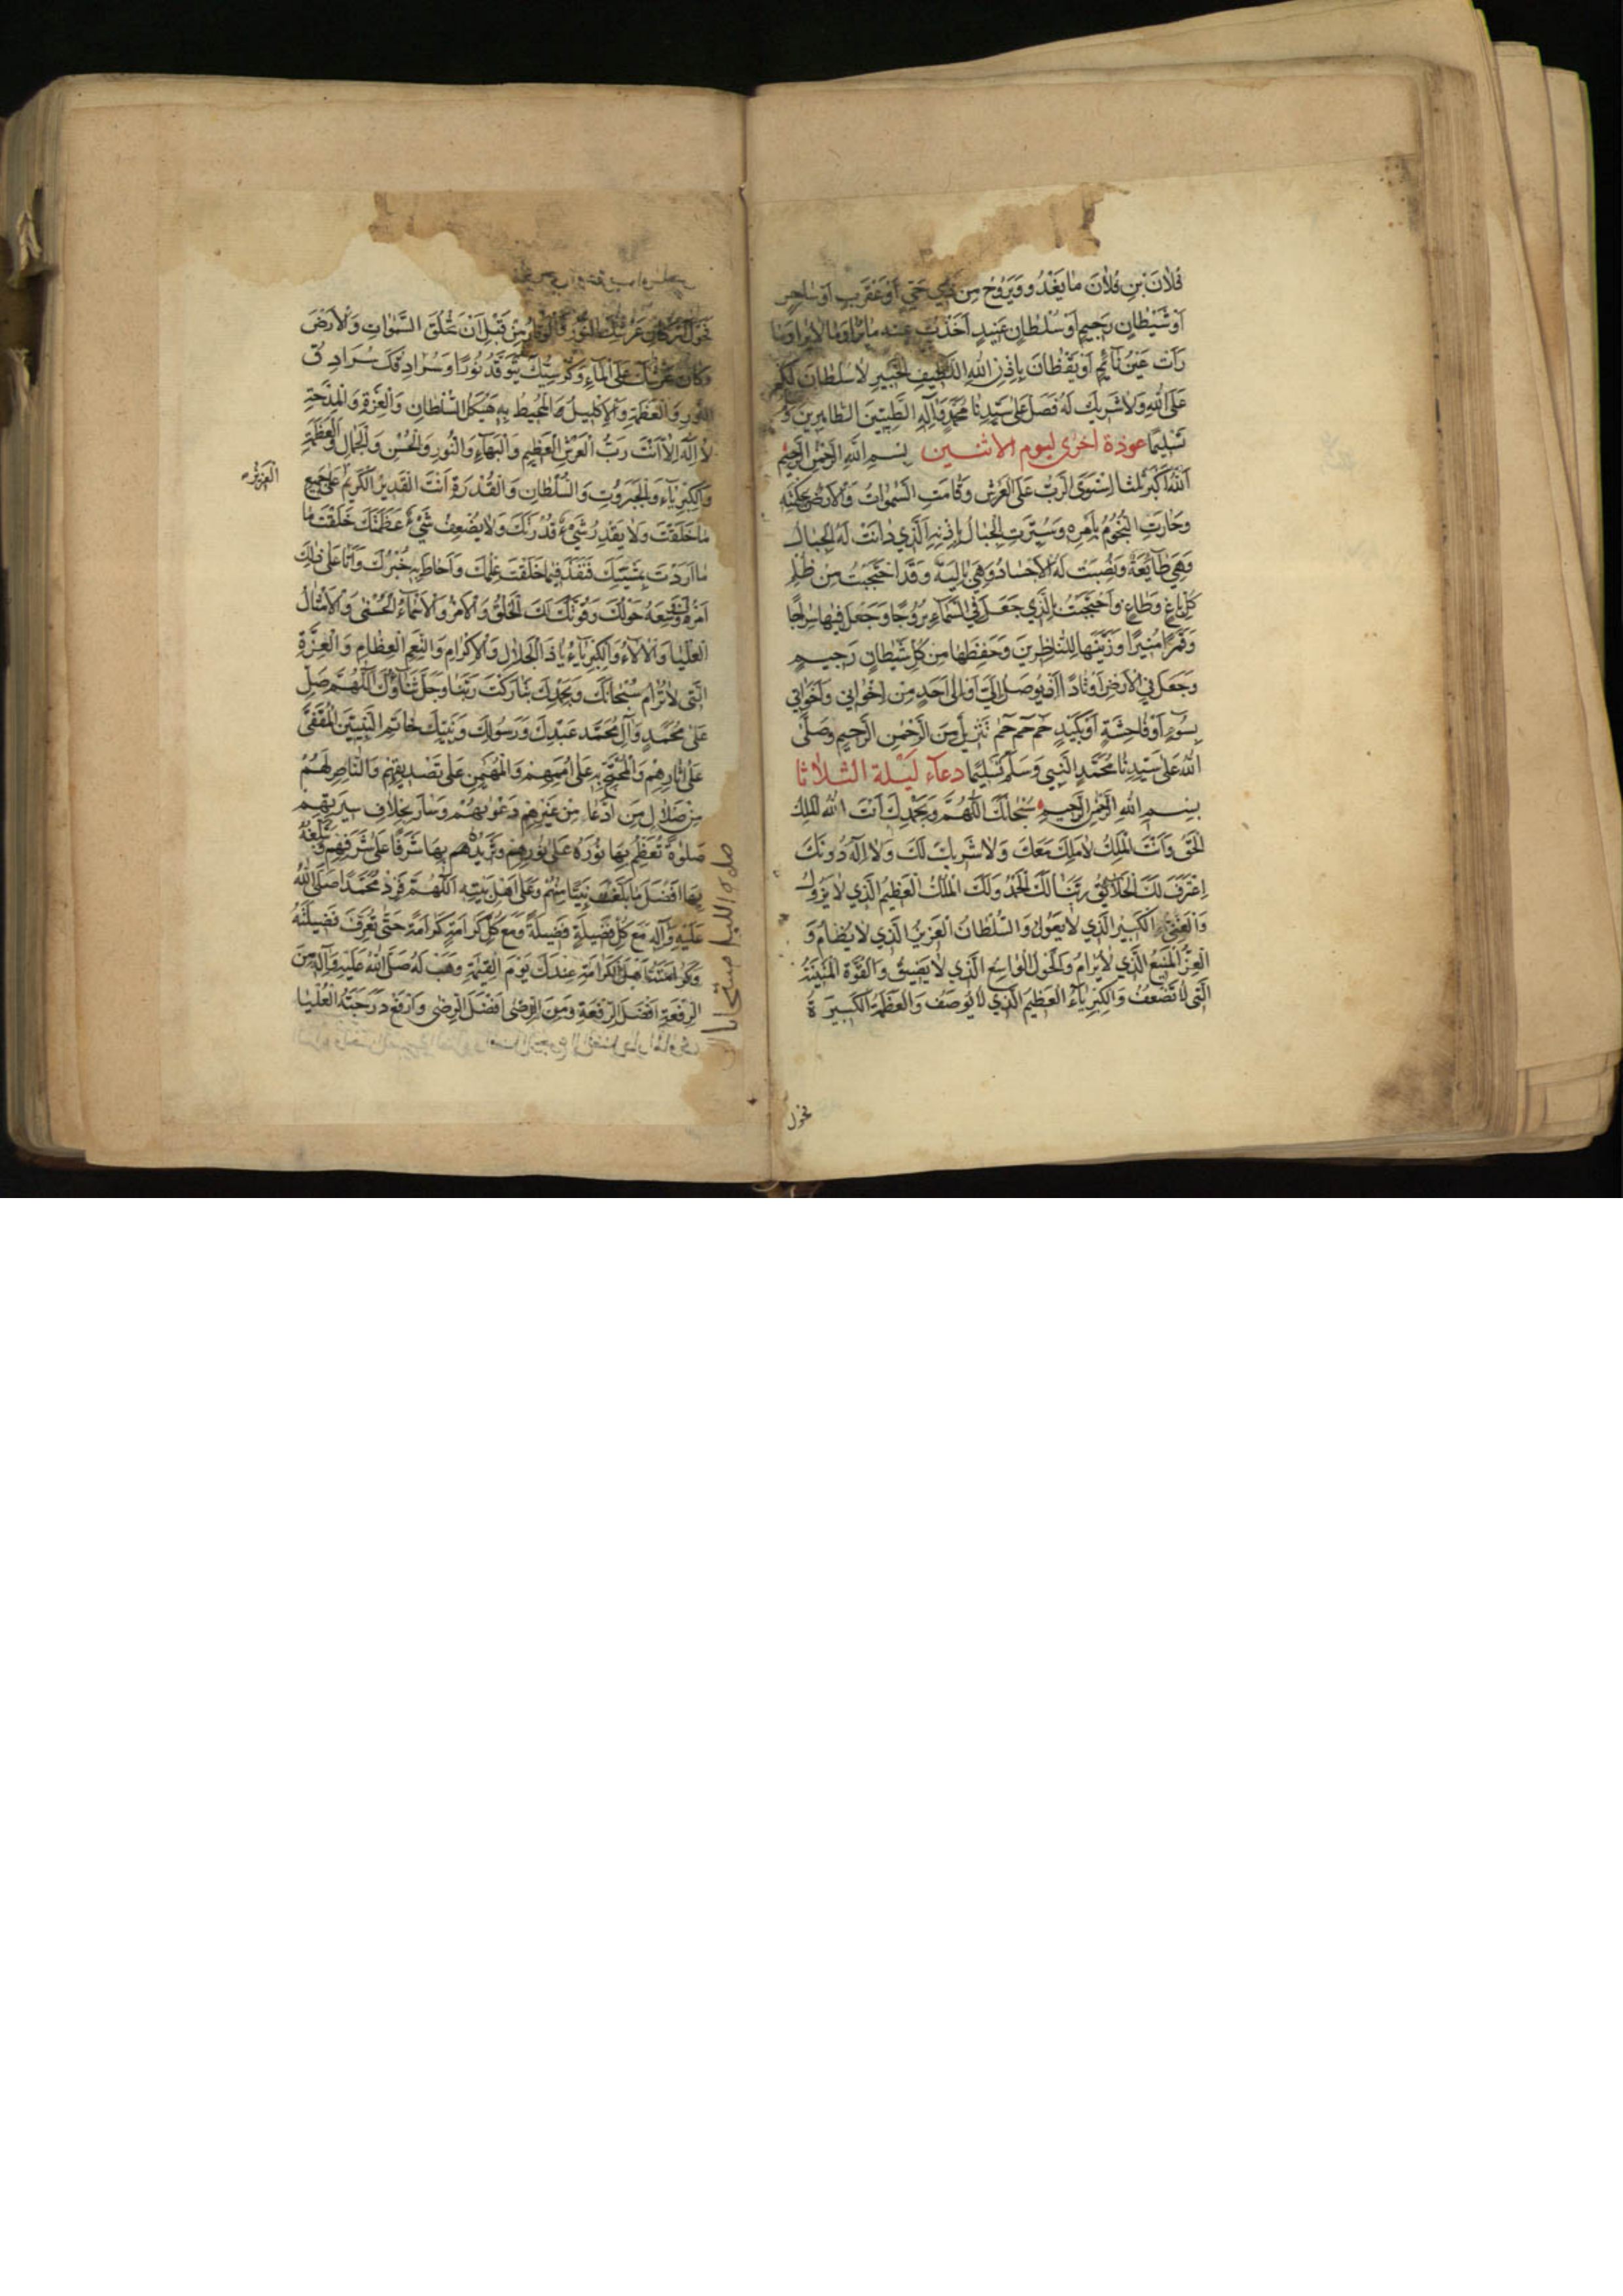 فُلَانَ بْنِ فُلَانَ مَا يَغْدُو وَيَرُوحُ مِنْ ذِي حَيٍّ أَوْ عَقْرَبٍ أَوْ سَاحِرٍ
أَوْ شَيْطَانٍ رَجِيمٍ أَوْ سُلْطَانٍ عَنِيدٍ أَخَذْتُ عَنْهُ مَا يُرَا وَمَا لَا يُرَا وَمَا
رَأَتْ عَيْنُ نَائِمٍ أَوْ يَقْظَانَ بِإِذْنِ اللهِ اللَّطِيفِ الْخَبِيرِ لَا سُلْطَانَ لَكُمْ
عَلَى اللهِ وَلَا شَرِيكَ لَهُ فَصَلِّ عَلَى سَيِّدِنَا مُحَمَّدٍ وَآلِهِ الطَّيِّبِينَ الطَّاهِرِينَ وَ
تَسْلِيمًا عوذة أخرى ليوم الاثنين بِسْمِ اللهِ الرَّحْمٰنِ الرَّحِيمِ
اَللهُ أَكْبَرُ كُلَّمَا اسْتَوَى الرَّبُّ عَلَى الْعَرْشِ وَقَامَتِ السَّمٰوَاتُ وَالْأَرْضُ بِحِكْمَتِهِ
وَحَارَتِ النُّجُومُ بِأَمْرِهِ وَسُيِّرَتِ الْجِبَالُ بِإِذْنِهِ الَّذِي دَانَتْ لَهُ الْجِبَالُ
وَهِيَ طَائِعَةٌ وَنُصِبَتْ لَهُ الْأَجْسَادُ وَهِيَ بَالِيَةٌ وَقَدِ احْتَجَبْتُ مِنْ ظُلْمِ
كُلِّ بَاغٍ وَطَاغٍ وَاحْتَجَبْتُ بِالَّذِي جَعَلَ فِي السَّمَاءِ بُرُوجًا وَجَعَلَ فِيهَا سِرَاجًا
وَقَمَرًا مُنِيرًا وَزَيَّنَهَا لِلنَّاظِرِينَ وَحَفِظَهَا مِنْ كُلِّ شَيْطَانٍ رَجِيمٍ
وَجَعَلَ فِي الْأَرْضِ أَوْتَادًا أَنْ يُوصَلَ إِلَيَّ أَوْ إِلَى أَحَدٍ مِنْ إِخْوَانِي وَأَخَوَاتِي
بِسُوءٍ أَوْ فَاحِشَةٍ أَوْ بِكَيْدٍ حٰم حٰم حٰم تَنْزِيلٌ مِنَ الرَّحْمٰنِ الرَّحِيمِ وَصَلَّى
اللهُ عَلَى سَيِّدِنَا مُحَمَّدٍ النَّبِيِّ وَسَلَّمَ تَسْلِيمًا دعاء ليلة الثلاثا
بِسْمِ اللهِ الرَّحْمٰنِ الرَّحِيمِ سُبْحَانَكَ اللّٰهُمَّ وَبِحَمْدِكَ أَنْتَ اللهُ الْمَلِكُ
الْحَقُّ وَأَنْتَ الْمَلِكُ لَا مَلِكَ مَعَكَ وَلَا شَرِيكَ لَكَ وَلَا إِلٰهَ دُونَكَ
اِعْتَرَفَ لَكَ الْخَلَائِقُ رَبَّنَا لَكَ الْحَمْدُ وَلَكَ الْمُلْكُ الْعَظِيمُ الَّذِي لَا يَزُولُ
وَالْغِنَى الْكَبِيرُ الَّذِي لَا يَعُولُ وَالسُّلْطَانُ الْعَزِيزُ الَّذِي لَا يُضَامُ وَ
الْعِزُّ الْمَنِيعُ الَّذِي لَا يُرَامُ وَالْحَوْلُ الْوَاسِعُ الَّذِي لَا يَضِيقُ وَالْقُوَّةُ الْمَتِينَةُ
الَّتِي لَا تَضْعُفُ وَالْكِبْرِيَاءُ الْعَظِيمُ الَّذِي لَا يُوصَفُ وَالْعَظَمَةُ الْكَبِيرَةُ
فحول
فَحَوْلَ أَرْكَانِ عَرْشِكَ النُّورُ وَالْوَقَارُ مِنْ قَبْلِ أَنْ تَخْلُقَ السَّمٰوَاتِ وَالْأَرْضَ
وَكَانَ عَرْشُكَ عَلَى الْمَاءِ وَكُرْسِيُّكَ يَتَوَقَّدُ نُورًا وَسُرَادِقُكَ سُرَادِقُ
النُّورِ وَالْعَظَمَةِ وَالْإِكْلِيلُ الْمُحِيطُ بِهِ هَيْكَلُ السُّلْطَانِ وَالْعِزَّةِ وَالْمِدْحَةِ
لَا إِلٰهَ إِلَّا أَنْتَ رَبُّ الْعَرْشِ الْعَظِيمِ وَالْبَهَاءِ وَالنُّورِ وَالْحُسْنِ وَالْجَمَالِ وَالْعَظَمَةِ
وَالْكِبْرِيَاءِ وَالْجَبَرُوتِ وَالسُّلْطَانِ وَالْقُدْرَةِ أَنْتَ الْقَدِيرُ الْكَرِيمُ عَلَى جَمِيعِ
العزيز
مَا خَلَقْتَ وَلَا يَقْدِرُ شَيْءٌ قُدْرَتَكَ وَلَا يُضْعِفُ شَيْءٌ عَظَمَتَكَ خَلَقْتَ مَا
مَا أَرَدْتَ بِمَشِيَّتِكَ فَنَفَذَ فِيمَا خَلَقْتَ عِلْمُكَ وَأَحَاطَ بِهِ خُبْرُكَ وَأَتَا عَلَى ذٰلِكَ
أَمْرُكَ وَوَسِعَهُ حَوْلُكَ وَقُوَّتُكَ لَكَ الْخَلْقُ وَالْأَمْرُ وَالْأَسْمَاءُ الْحُسْنَى وَالْأَمْثَالُ
الْعُلْيَا وَالْآلَاءُ وَالْكِبْرِيَاءُ يَا ذَا الْجَلَالِ وَالْإِكْرَامِ وَالنِّعَمِ الْعِظَامِ وَالْعِزَّةِ
الَّتِي لَا تُرَامُ سُبْحَانَكَ وَبِحَمْدِكَ تَبَارَكْتَ رَبَّنَا وَجَلَّ ثَنَاؤُكَ اَللّٰهُمَّ صَلِّ
عَلَى مُحَمَّدٍ وَآلِ مُحَمَّدٍ عَبْدِكَ وَرَسُولِكَ وَنَبِيِّكَ خَاتَمِ النَّبِيِّينَ الْمُقَفَّى
عَلَى آثَارِهِمْ وَالْمُحْتَجِّ بِهِ عَلَى أُمَمِهِمْ وَالْمُهَيْمِنِ عَلَى تَصْدِيقِهِمْ وَالنَّاصِرِ لَهُمْ
مِنْ ضَلَالِ مَنِ ادَّعَا مِنْ غَيْرِهِمْ دَعْوَتَهُمْ وَسَارَ بِخِلَافِ سِيرَتِهِمْ
صَلٰوةً تُعَظِّمُ بِهَا نُورَهُ عَلَى نُورِهِمْ وَتَزِيدُهُ بِهَا شَرَفًا عَلَى شَرَفِهِمْ وَتُبَلِّغُهُ
بِهَا أَفْضَلَ مَا بَلَّغْتَ نَبِيًّا مِنْهُمْ وَعَلَى أَهْلِ بَيْتِهِ اَللّٰهُمَّ فَزِدْ مُحَمَّدًا صَلَّى اللهُ
عَلَيْهِ وَآلِهِ مَعَ كُلِّ فَضِيلَةٍ فَضِيلَةً وَمَعَ كُلِّ كَرَامَةٍ كَرَامَةً حَتَّى تُعَرِّفَ فَضِيلَتَهُ
وَكَرَامَتَهُ أَهْلَ الْكَرَامَةِ عِنْدَكَ يَوْمَ الْقِيٰمَةِ وَهَبْ لَهُ صَلَّى اللهُ عَلَيْهِ وَآلِهِ مِنَ
الرِّفْعَةِ أَفْضَلَ الرِّفْعَةِ وَمِنَ الرِّضَى أَفْضَلَ الرِّضَى وَارْفَعْ دَرَجَتَهُ الْعُلْيَا